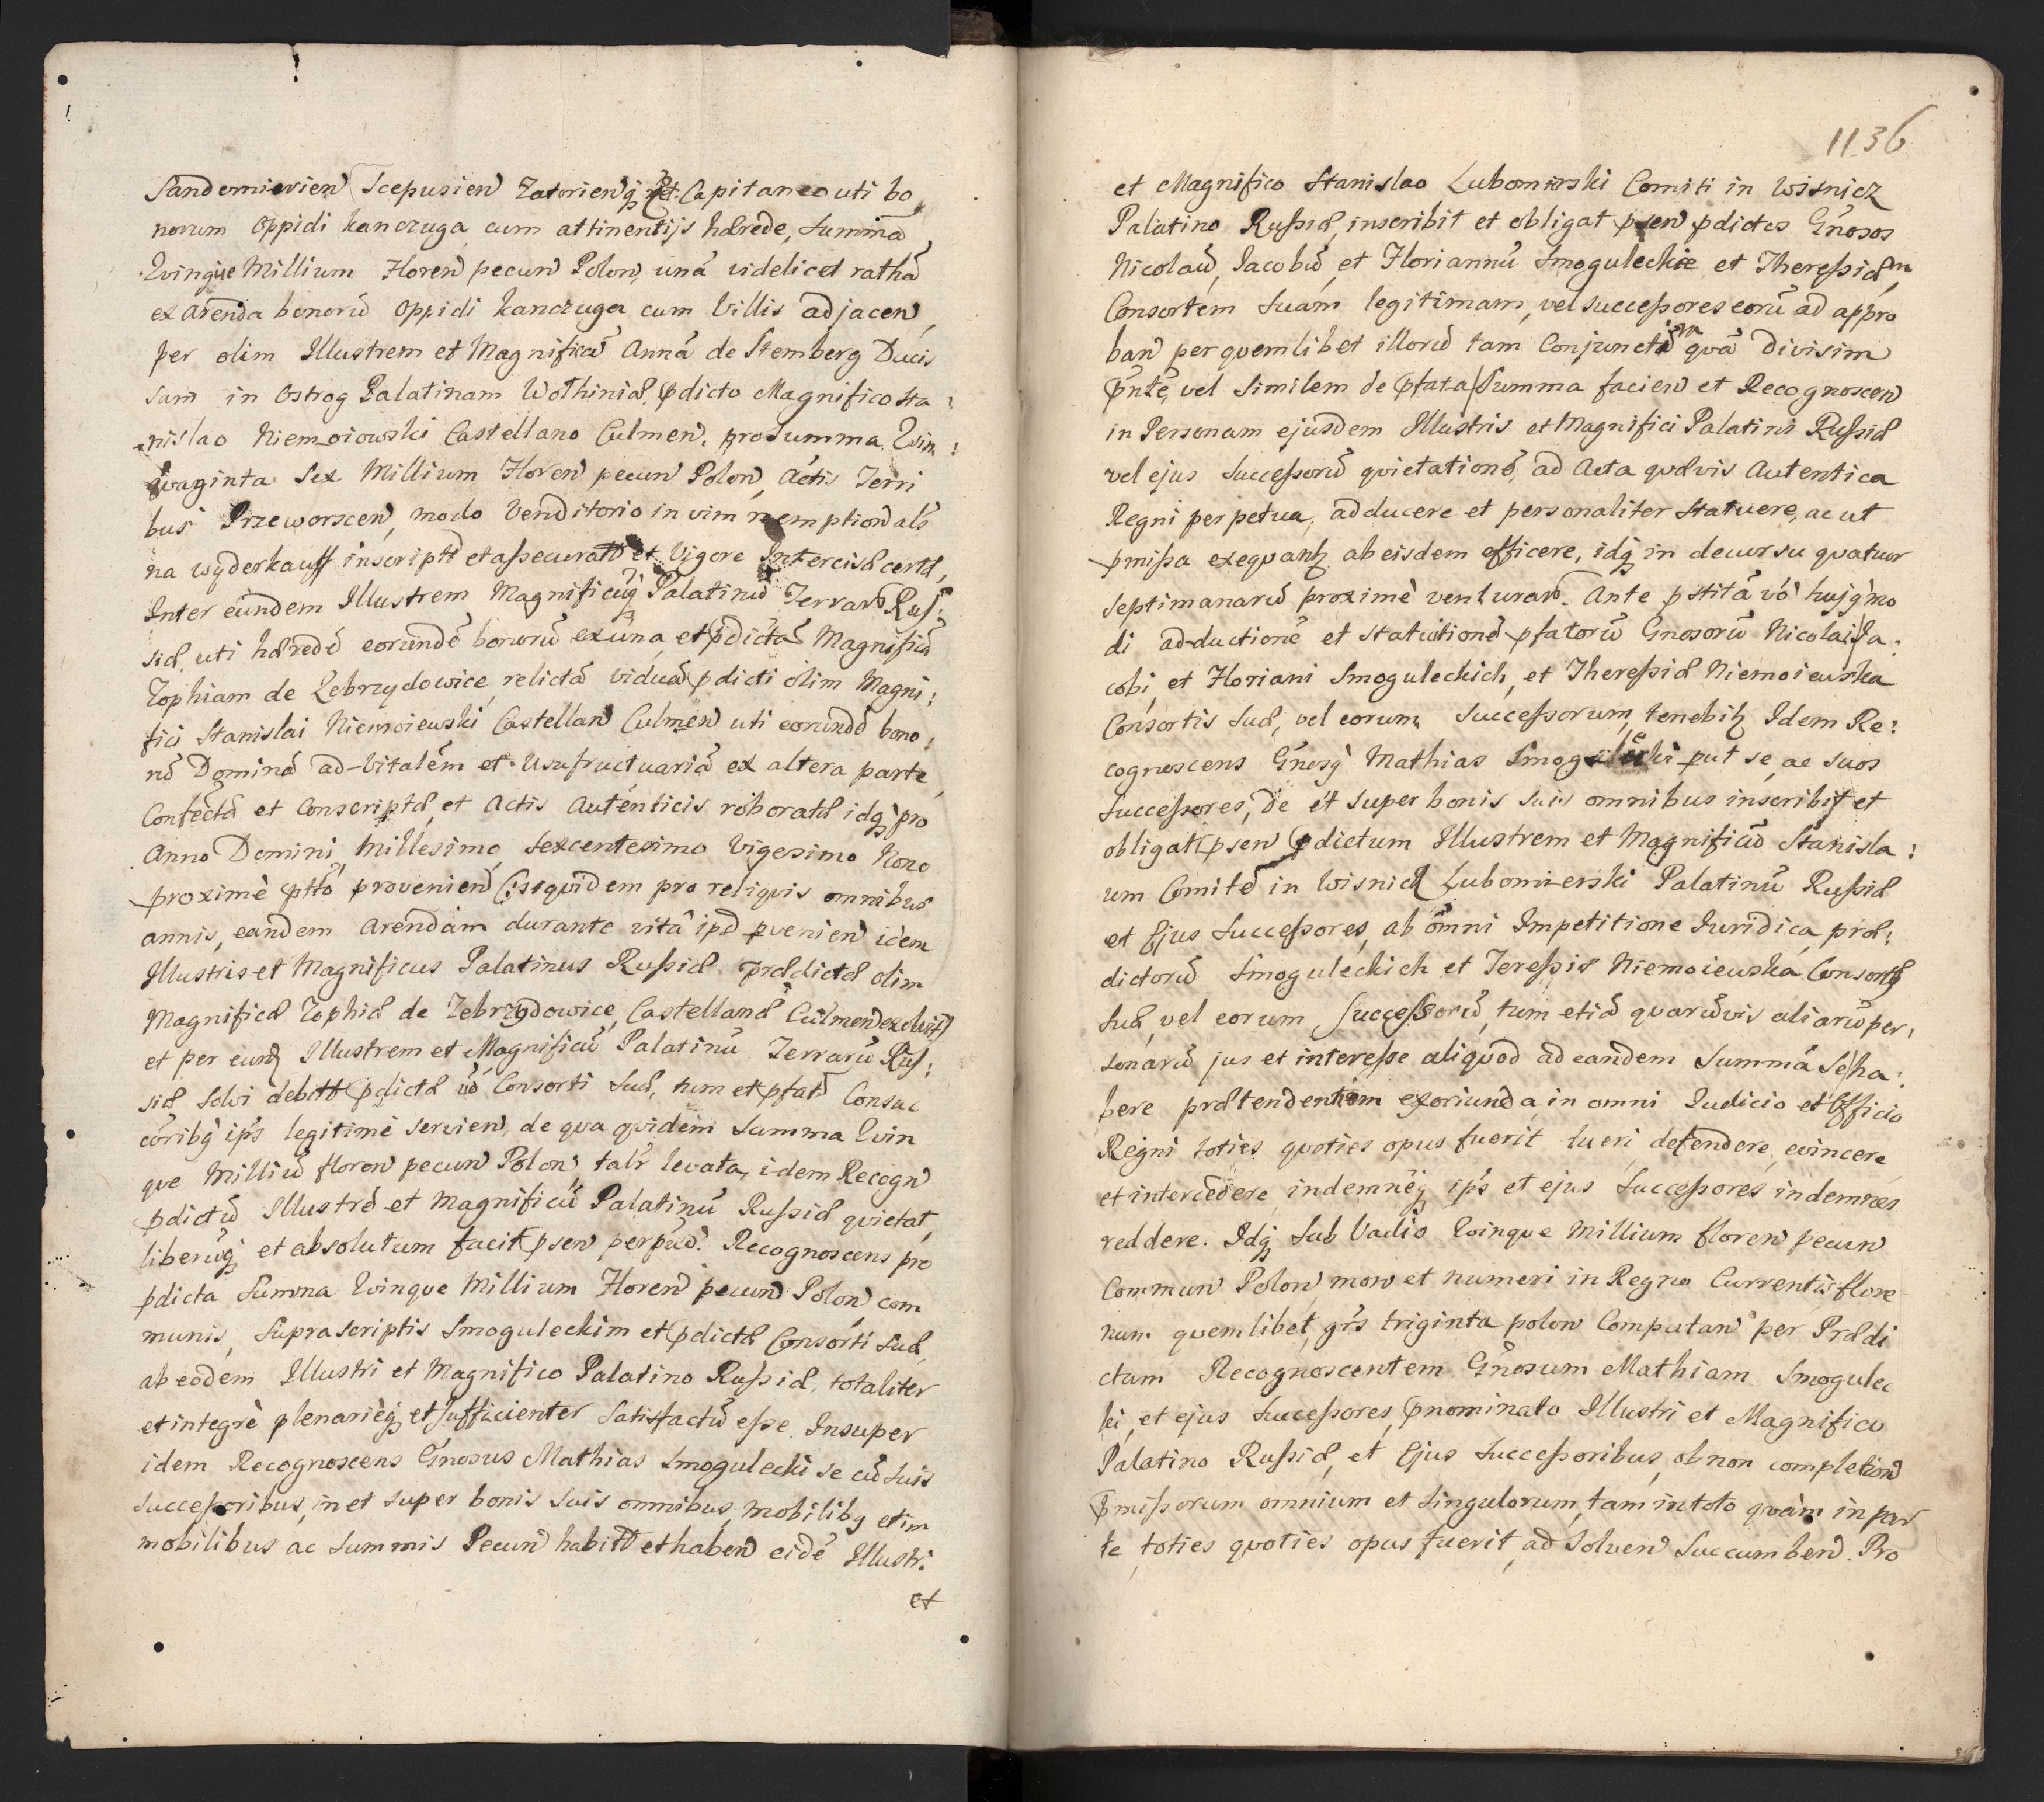 Sandomirien Scepusien Zatorienq; etc. Capitaneo uti bo
norum Oppidi Kanczuga cum attinentijs hærede, Summã
Qvinque Millium Floren pecun Polon, unã videlicet rathã
ex arenda bonorũ Oppidi Kanczuga cum Villis adjacen,
per olim Illustrem et Magnificã Annã de Stemberg Ducis
sam in Ostrog Palatinam Wolhiniæ, pdicto Magnifico Sta:
nislao Niemoiowski Castellano Culmen, pro Summa Qvin:
qvaginta Sex Millium Floren pecun Polon, Actis Terri
bus Przeworscen, modo Venditorio in vim reemptionals
na wyderkauff inscriptæ et assecuratæ et Vigore Intercisæ certæ,
Inter eundem Illustrem Magnificũq; Palatinũ Terrarũ Rus:
siæ, uti hæredẽ eorundẽ bonorũ ex una, et pdictã Magnificã
Zophiam de Zebrzydowice, relictã viduã pdicti olim Magni:
fici Stanislai Niemoiewski Castellan Culmen uti eorundẽ bono:
rũ Dominã ad-Vitalẽm et Usufructuariã ex altera parte,
Confectæ et Conscriptæ, et Actis Autenticis roboratæ idq; pro
Anno Domini Millesimo Sexcentesimo Vigesimo Nono
proximè ptto provenien (: siquidem pro reliquis omnibus
annis, eandem Arendam durante vitâ ipæ pvenien idem
Illustris et Magnificus Palatinus Russiæ prædictæ olim
Magnificæ Zophiæ de Zebrzydowice, Castellanæ Culmen exolvit)
et per eund Illustrem et Magnificũ Palatinũ Terrarũ Rus:
siæ Solvi debittæ pdictæ vo Consorti Suæ, tum et pfatæ Consuc
corib9 ips legitimè servien, de qva qvidem Summa Qvin
qve Milliũ floren pecun Polon, talr levata, idem Recogn
pdictũ Illustrẽ et Magnificũ Palatinũ Russiæ qvietat,
liberũq; et absolutum facit psen perpuo. Recognoscens pro
pdicta Summa Qvinqve Millium Floren pecun Polon com
munis, Suprascriptis Smoguleckim et pdictæ Consorti Suæ,
ab eodem Illustri et Magnifico Palatino Russiæ, totaliter
et integrè plenarièq; et sufficienter Satisfactũ esse. Insuper
idem Recognoscens Gnosus Mathias Smogulecki se cũ Suis
Successoribus, in et super bonis Suis omnibus, mobilib9 et im
mobilibus ac Summis Pecun habitt et haben eidẽ Illustri.
et
1136
et Magnifico Stanislao Lubomirski Comiti in Wisnicz
Palatino Russiæ, inscribit et obligat psen pdictos Gnosos
Nicolaũ, Jacobũ, et Floriannũ Smoguleckie et Theressiam,
Consortem Suam legitimam, vel successores eorũ ad appro
ban per qvemlibet illorũ tam Conjunctim qvã Divisim
Pntẽ, vel Similem de Pfata Summa facien et Recognoscen
in Personam ejusdem Illustris et Magnifici Palatini Russiæ
vel ejus Successorũ qvietationẽ, ad Acta qvævis Autentica
Regni perpetua, adducere et personaliter Statuere, ac ut
pmissa exeqvantz ab eisdem efficere, idq; in decursu qvatuor
Septimanarũ proximè venturarũ. Ante pstitã vo hujgmo
di ad-ductionẽ et Statuitionẽ pfatorũ Gnosorũ Nicolai, Ja:
cobi, et Floriani Smoguleckich, et Theressiæ Niemoiewska
Consortis Suæ, vel eorum Successorum, tenebitz Idem Re:
cognoscens Gnosq Mathias Smogulecki put se, ac suos
Successores, de et super bonis suis omnibus inscribit et
obligat psen pdictum Illustrem et Magnificũ Stanisla:
um Comitẽ in Wisnicz Lubomierski Palatinũ Russiæ
et Ejus Successores, ab omni Impetitione Juridica, præ:
dictorũ Smoguleckich et Teressiæ Niemoiewska Consortis
Suæ, vel eorum Successorũ, tum etiã qvarũvis aliarũ per:
sonarũ jus et interesse aliqvod ad eandem Summã Se ha:
bere prætendentium exoriunda, in omni Judicio et Officio
Regni toties qvoties opus fuerit tueri, defendere, evincere
et intercedere, indemnẽq; ips et ejus Successores indemnes
reddere. Idq; Sub Vadio Qvinqve Millium floren pecun
Commun Polon, mon et numeri in Regno Currentis flore
num qvemlibet, grs triginta polon Computan per Prædi
ctum Recognoscentem Gnosum Mathiam Smogulec
ki, et ejus Successores, Pnominato Illustri et Magnifico
Palatino Russiæ, et Ejus Successoribus, ob non completion
Pmissorum omnium et Singulorum, tam in toto qvàm in par
te, toties qvoties opus fuerit, ad Solven Succumben. Pro